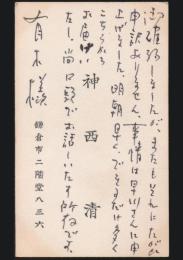 御確約しましたが、またもそれにたがひ
申訳ありません。事情は早川さんに申
上げました。明朝早く、できただけ多く
神西清
こちらから
お届けい
たし、尚口頭でお話しいたす所存です。
有木様
鎌倉市二階堂八三六